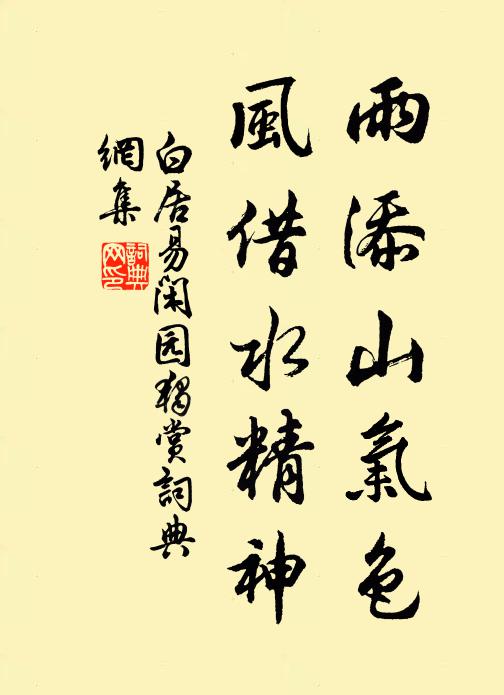 雨添山氣色
風借水精神
白居易闲园獨賞詞典
網集
詞典
网印